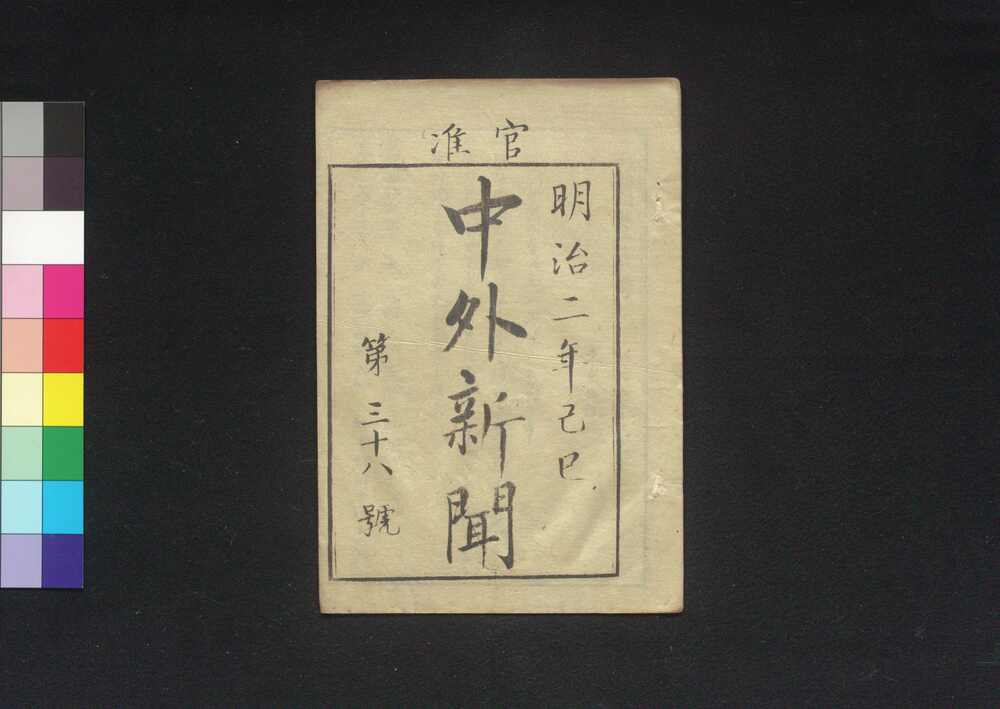 官准
明治二年己巳
中外新聞
第三十八號